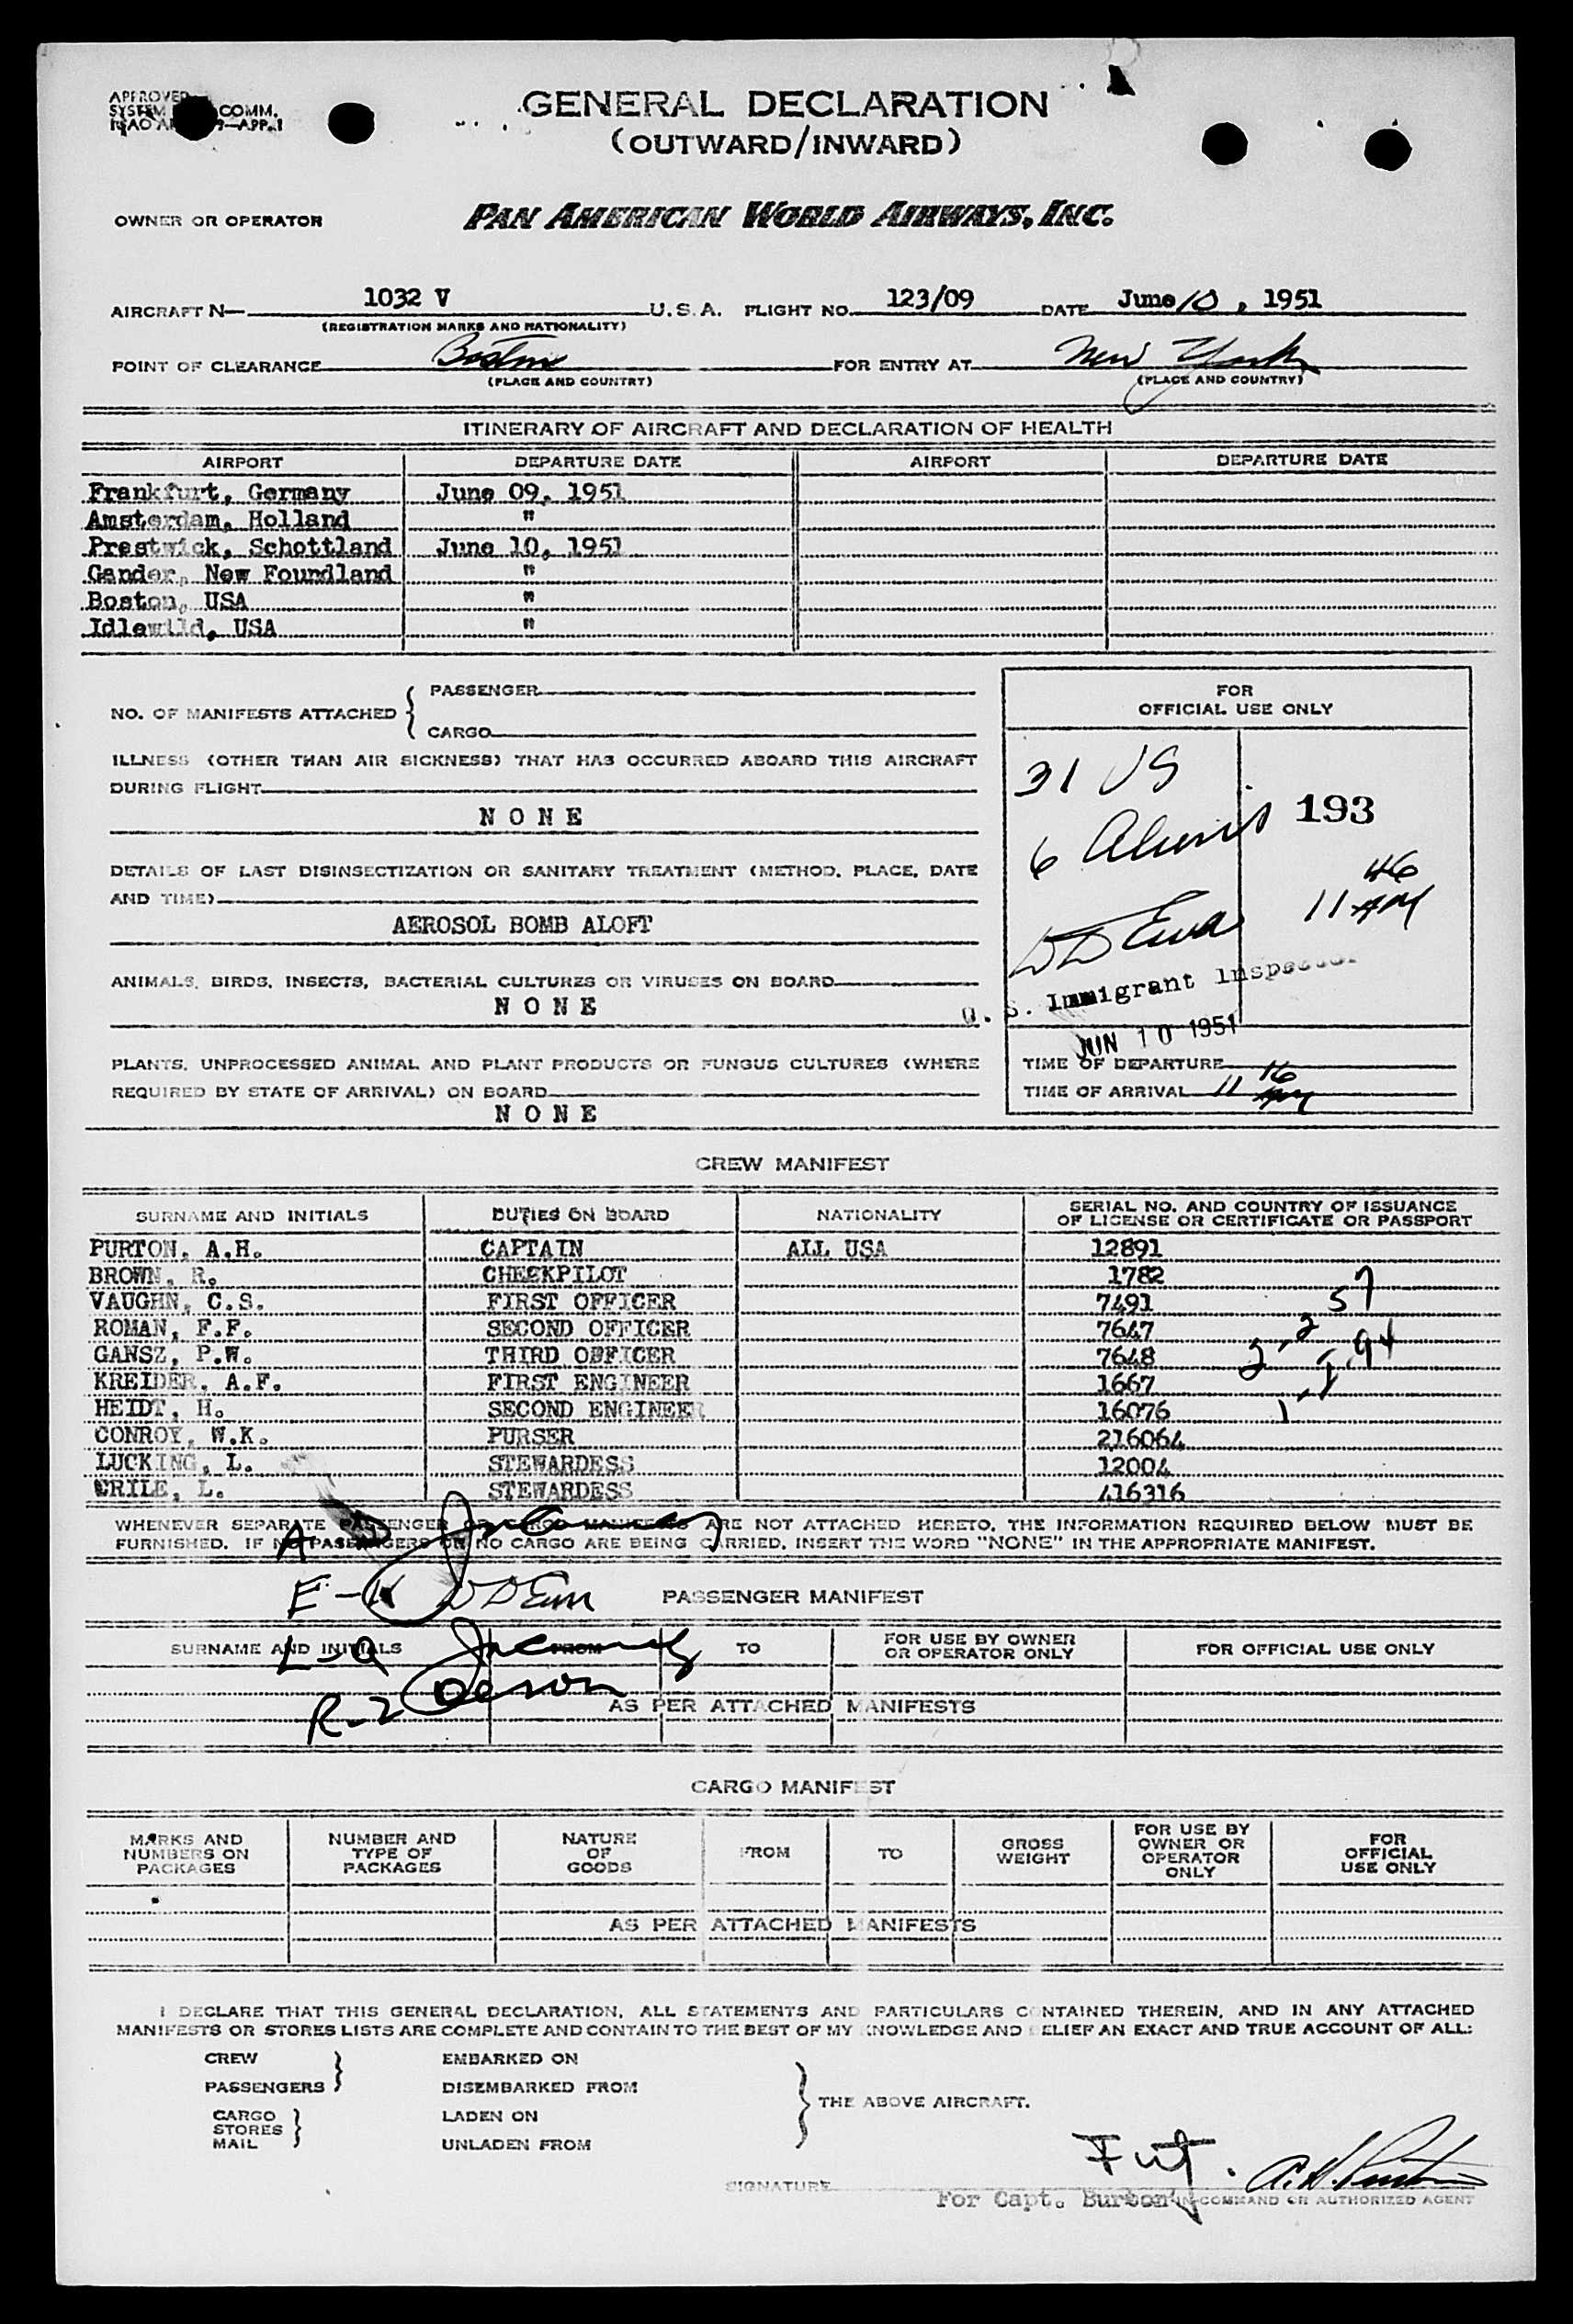 APPROVED
SYSTEM COMM.
9—APP. 1
GENERAL DECLARATION
(OUTWARD/INWARD)
OWNER OR OPERATOR PAN AMERICAN WORLD AIRWAYS, INC.
AIRCRAFT N— 1032 V U.S.A. FLIGHT NO. 123/09 DATE June 10, 1951
(REGISTRATION MARKS AND NATIONALITY)
POINT OF CLEARANCE Boston FOR ENTRY AT New York
(PLACE AND COUNTRY) (PLACE AND COUNTRY)
ITINERARY OF AIRCRAFT AND DECLARATION OF HEALTH
AIRPORT DEPARTURE DATE AIRPORT DEPARTURE DATE
Frankfurt, Germany June 09, 1951
Amsterdam, Holland "
Prestwick, Schottland June 10, 1951
Gander, New Foundland "
Boston, USA "
Idlewild, USA "
NO. OF MANIFESTS ATTACHED { PASSENGER
CARGO
FOR
OFFICIAL USE ONLY
ILLNESS (OTHER THAN AIR SICKNESS) THAT HAS OCCURRED ABOARD THIS AIRCRAFT
DURING FLIGHT
NONE
31 US
6 Aliens
193
DETAILS OF LAST DISINSECTIZATION OR SANITARY TREATMENT (METHOD, PLACE, DATE
AND TIME)
AEROSOL BOMB ALOFT
46
11 AM
ANIMALS, BIRDS, INSECTS, BACTERIAL CULTURES OR VIRUSES ON BOARD
NONE
U. S. Immigrant Inspector
JUN 10 1951
PLANTS, UNPROCESSED ANIMAL AND PLANT PRODUCTS OR FUNGUS CULTURES (WHERE
REQUIRED BY STATE OF ARRIVAL) ON BOARD
NONE
TIME OF DEPARTURE
TIME OF ARRIVAL 11 16 AM
CREW MANIFEST
SURNAME AND INITIALS DUTIES ON BOARD NATIONALITY SERIAL NO. AND COUNTRY OF ISSUANCE
OF LICENSE OR CERTIFICATE OR PASSPORT
PURTON, A.H. CAPTAIN ALL USA 12891
BROWN, R. CHECKPILOT 1782
VAUGHN, C.S. FIRST OFFICER 7491
ROMAN, F.F. SECOND OFFICER 7647
GANSZ, P.W. THIRD OFFICER 7648
KREIDER, A.F. FIRST ENGINEER 1667
HEIDT, H. SECOND ENGINEER 16076
CONROY, W.K. PURSER 216064
LUCKING, L. STEWARDESS 12004
CRILE, L. STEWARDESS 416316
WHENEVER SEPARATE PASSENGER OR CARGO MANIFESTS ARE NOT ATTACHED HERETO, THE INFORMATION REQUIRED BELOW MUST BE
FURNISHED. IF NO PASSENGERS OR NO CARGO ARE BEING CARRIED, INSERT THE WORD "NONE" IN THE APPROPRIATE MANIFEST.
A-D
E-K
PASSENGER MANIFEST
SURNAME AND INITIALS FROM TO FOR USE BY OWNER
OR OPERATOR ONLY FOR OFFICIAL USE ONLY
L-Q
R-Z
AS PER ATTACHED MANIFESTS
CARGO MANIFEST
MARKS AND
NUMBERS ON
PACKAGES
NUMBER AND
TYPE OF
PACKAGES
NATURE
OF
GOODS
FROM
TO
GROSS
WEIGHT
FOR USE BY
OWNER OR
OPERATOR
ONLY
FOR
OFFICIAL
USE ONLY
AS PER ATTACHED MANIFESTS
I DECLARE THAT THIS GENERAL DECLARATION, ALL STATEMENTS AND PARTICULARS CONTAINED THEREIN, AND IN ANY ATTACHED
MANIFESTS OR STORES LISTS ARE COMPLETE AND CONTAIN TO THE BEST OF MY KNOWLEDGE AND BELIEF AN EXACT AND TRUE ACCOUNT OF ALL:
CREW EMBARKED ON
PASSENGERS DISEMBARKED FROM
THE ABOVE AIRCRAFT.
CARGO LADEN ON
STORES
MAIL UNLADEN FROM
SIGNATURE A.H. Purton
For Capt. Burton IN COMMAND OR AUTHORIZED AGENT